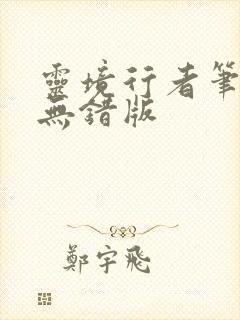 靈境行者筆
無錯版
鄭宇飛